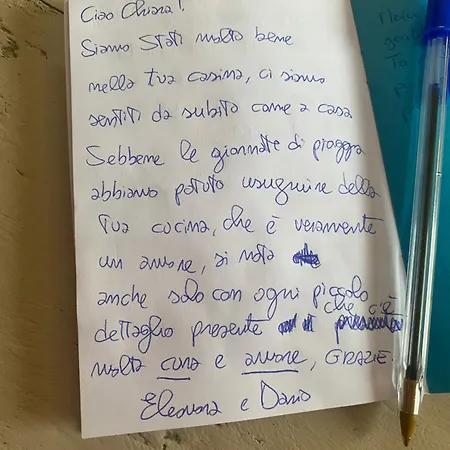 Ciao Chiara!
Siamo Stati molto bene
nella tua casina, ci siamo
sentiti da subito come a casa
Sebbene le giornate di pioggia
abbiamo potuto usuguire della
tua cucina, che è veramente
un amore, si nota
anche solo con ogni piccolo
dettaglio presente che c'è
molta cura e amore, GRAZIE.
Eleonora e Dario